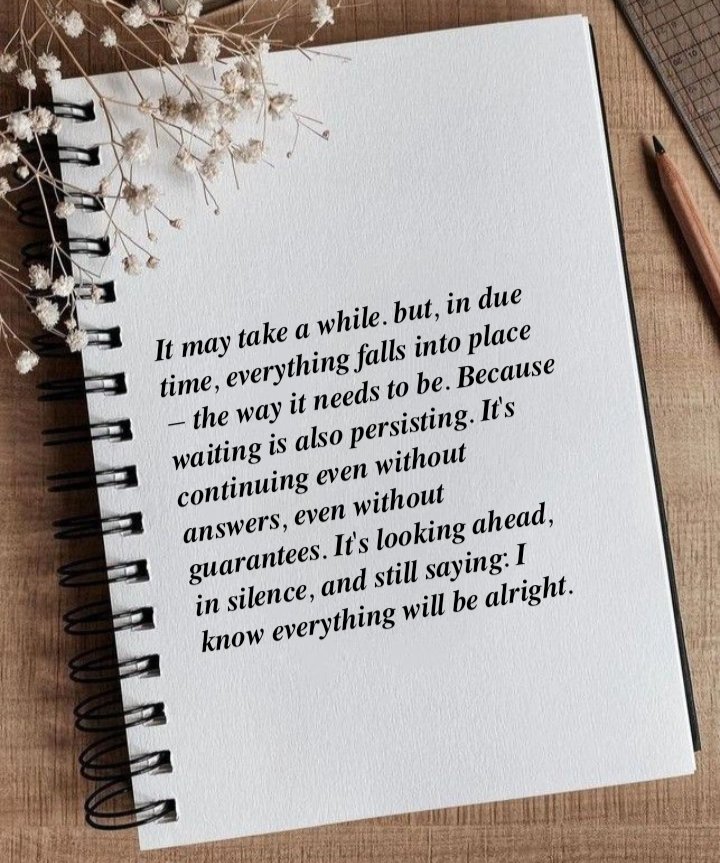 It may take a while. but, in due
time, everything falls into place
– the way it needs to be. Because
waiting is also persisting. It's
continuing even without
answers, even without
guarantees. It's looking ahead,
in silence, and still saying: I
know everything will be alright.